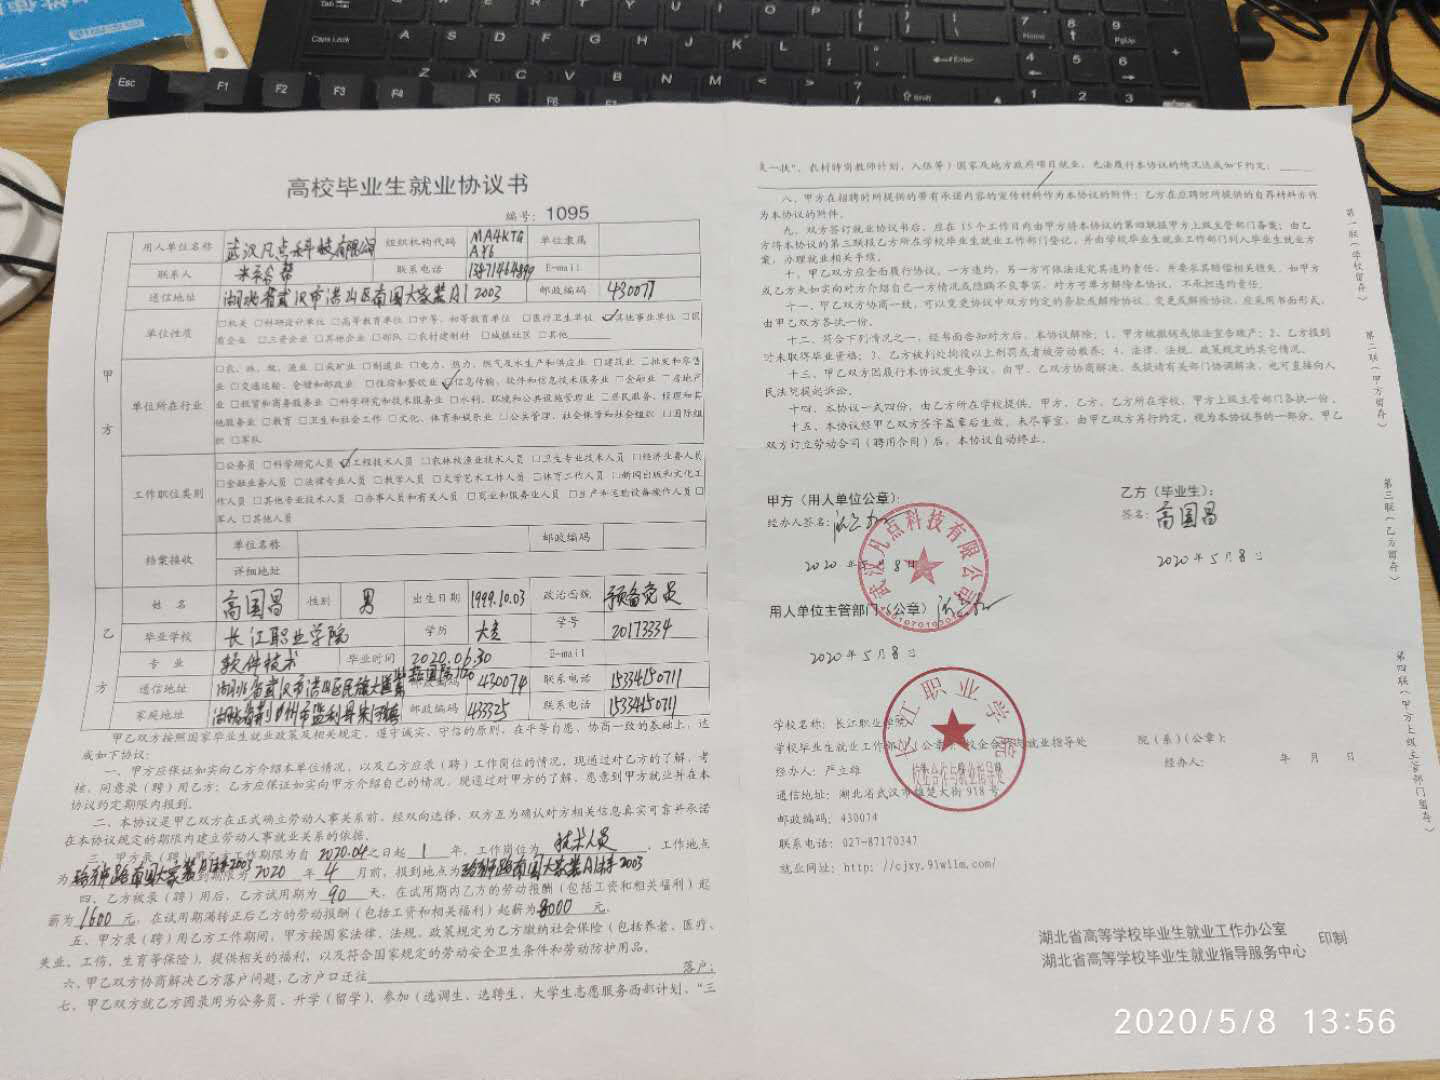 高校毕业生就业协议书
编号：1095
甲方
用人单位名称 武汉凡点科技有限公司 组织机构代码 MA4KTG 单位隶属
联系人 联系电话 E-mail
通信地址 湖北省武汉市洪山区南国大家装A1 2003 邮政编码 430077
单位性质 □机关 □科研设计单位 □高等教育单位 □中等、初等教育单位 □医疗卫生单位 ☑其他事业单位 □国
有企业 □三资企业 □其他企业 □部队 □农村建制村 □城镇社区 □其他
单位所在行业 □农、林、牧、渔业 □采矿业 □制造业 □电力、热力、燃气及水生产和供应业 □建筑业 □批发和零售
业 □交通运输、仓储和邮政业 □住宿和餐饮业 ☑信息传输、软件和信息技术服务业 □金融业 □房地产
业 □租赁和商务服务业 □科学研究和技术服务业 □水利、环境和公共设施管理业 □居民服务、修理和其
他服务业 □教育 □卫生和社会工作 □文化、体育和娱乐业 □公共管理、社会保障和社会组织 □国际组
织 □军队
工作职位类别 □公务员 □科学研究人员 ☑工程技术人员 □农林牧渔业技术人员 □卫生专业技术人员 □经济业务人员
□金融业务人员 □法律专业人员 □教学人员 □文学艺术工作人员 □体育工作人员 □新闻出版和文化工
作人员 □其他专业技术人员 □办事人员和有关人员 □商业和服务业人员 □生产和运输设备操作人员 □
军人 □其他人员
档案接收 单位名称 邮政编码
详细地址
乙方
姓名 高国昌 性别 男 出生日期 1999.10.03 政治面貌 预备党员
毕业学校 长江职业学院 学历 大专 学号 20173334
专业 软件技术 毕业时间 2020.06.30 E-mail
通信地址 湖北省武汉市洪山区民族大道 邮政编码 430074 联系电话 15334150711
家庭地址 湖北省荆州市监利县朱河镇 邮政编码 433325 联系电话 15334150711
甲乙双方按照国家毕业生就业政策及相关规定，遵守诚实、守信的原则，在平等自愿，协商一致的基础上，达
成如下协议：
一、甲方应保证如实向乙方介绍本单位情况，以及乙方应录（聘）工作岗位的情况，现通过对乙方的了解，考
核，同意录（聘）用乙方；乙方应保证如实向甲方介绍自己的情况，现通过对甲方的了解，愿意到甲方就业并在本
协议约定期限内报到。
二、本协议是甲乙双方在正式确立劳动人事关系前，经双向选择，双方互为确认对方相关信息真实可靠并承诺
在本协议规定的期限内建立劳动人事就业关系的依据。
三、甲方录（聘）用乙方工作期限为自 2020.04 之日起 1 年，工作岗位为 技术人员 ，工作地点
为 南国大家装 到期限为 2020 年 4 月前，报到地点为 南国大家装A1 2003
四、乙方被录（聘）用后，乙方试用期为 90 天，在试用期内乙方的劳动报酬（包括工资和相关福利）起
薪为 1600 元，在试用期满转正后乙方的劳动报酬（包括工资和相关福利）起薪为 8000 元。
五、甲方录（聘）用乙方工作期间，甲方按国家法律、法规、政策规定为乙方缴纳社会保险（包括养老、医疗、
失业、工伤、生育等保险），提供相关的福利，以及符合国家规定的劳动安全卫生条件和劳动防护用品。
六、甲乙双方协商解决乙方落户问题，乙方户口迁往 落户；
七、甲乙双方就乙方因录用为公务员、升学（留学）、参加（选调生、选聘生、大学生志愿服务西部计划、“三
支一扶”、农村特岗教师计划，入伍等）国家及地方政府项目就业，无法履行本协议的情况达成如下约定：
八、甲方在招聘时所提供的带有承诺内容的宣传材料作为本协议的附件；乙方在应聘时所提供的自荐材料亦作
为本协议的附件。
九、双方签订就业协议书后，应在 15 个工作日内由甲方将本协议的第四联报甲方上级主管部门备案；由乙
方将本协议的第三联报乙方所在学校毕业生就业工作部门登记，并由学校毕业生就业工作部门列入毕业生就业方
案，办理就业相关手续。
十、甲乙双方应全面履行协议，一方违约，另一方可依法追究其违约责任，并要求其赔偿相关损失。如甲方
或乙方未如实向对方介绍自己一方情况及隐瞒不良事实，对方可单方解除本协议，不承担违约责任。
十一、甲乙双方协商一致，可以变更协议中双方约定的条款或解除协议，变更或解除协议，应采用书面形式，
由甲乙双方各执一份。
十二、符合下列情况之一，经书面告知对方后，本协议解除：1、甲方被撤销或依法宣告破产；2、乙方报到
时未取得毕业资格；3、乙方被判处拘役以上刑罚或者被劳动教养；4、法律、法规、政策规定的其它情况。
十三、甲乙双方因履行本协议发生争议，由甲、乙双方协商解决，或提请有关部门协调解决，也可直接向人
民法院提起诉讼。
十四、本协议一式四份，由乙方所在学校提供，甲方、乙方、乙方所在学校、甲方上级主管部门各执一份。
十五、本协议经甲乙双方签字盖章后生效。未尽事宜，由甲乙双方另行约定，视为本协议书的一部分。甲乙
双方订立劳动合同（聘用合同）后，本协议自动终止。
甲方（用人单位公章）： 乙方（毕业生）：
经办人签名： 签名：高国昌
2020年 8日 2020年5月8日
武汉凡点科技有限公司
用人单位主管部门（公章）
2020年5月8日
长江职业学院
校企合作与就业指导处
学校名称：长江职业学院
学校毕业生就业工作部门（公章）：校企合作与就业指导处 院（系）（公章）：
经办人：严立雄 经办人： 年 月 日
通信地址：湖北省武汉市雄楚大街 918 号
邮政编码：430074
联系电话：027-87170347
就业网址：http://cjxy.91wllm.com/
湖北省高等学校毕业生就业工作办公室
湖北省高等学校毕业生就业指导服务中心 印制
第一联（学校留存）
第二联（甲方留存）
第三联（乙方留存）
第四联（甲方上级主管部门留存）
2020/5/8 13:56